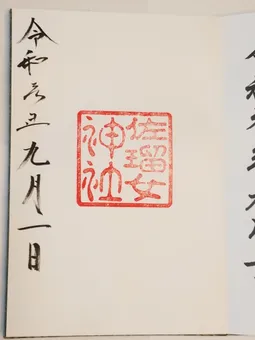 佐瑠女
神社
令和元年九月一日